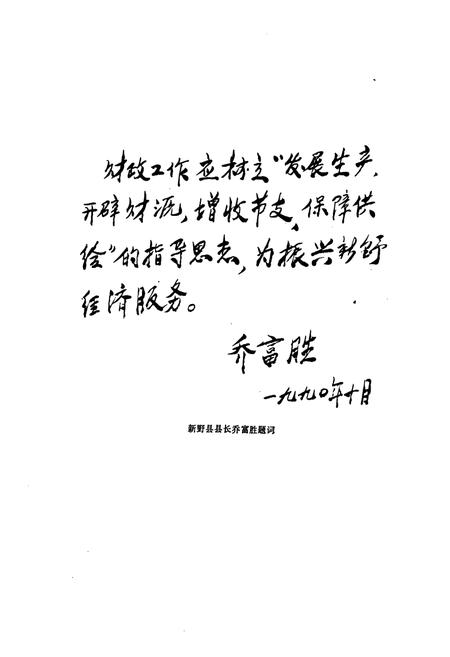 财政工作应树立“发展生产,
开辟财源,增收节支,保障供
给”的指导思想,为振兴新野
经济服务。
乔富胜
一九九〇年十月
新野县县长乔富胜题词